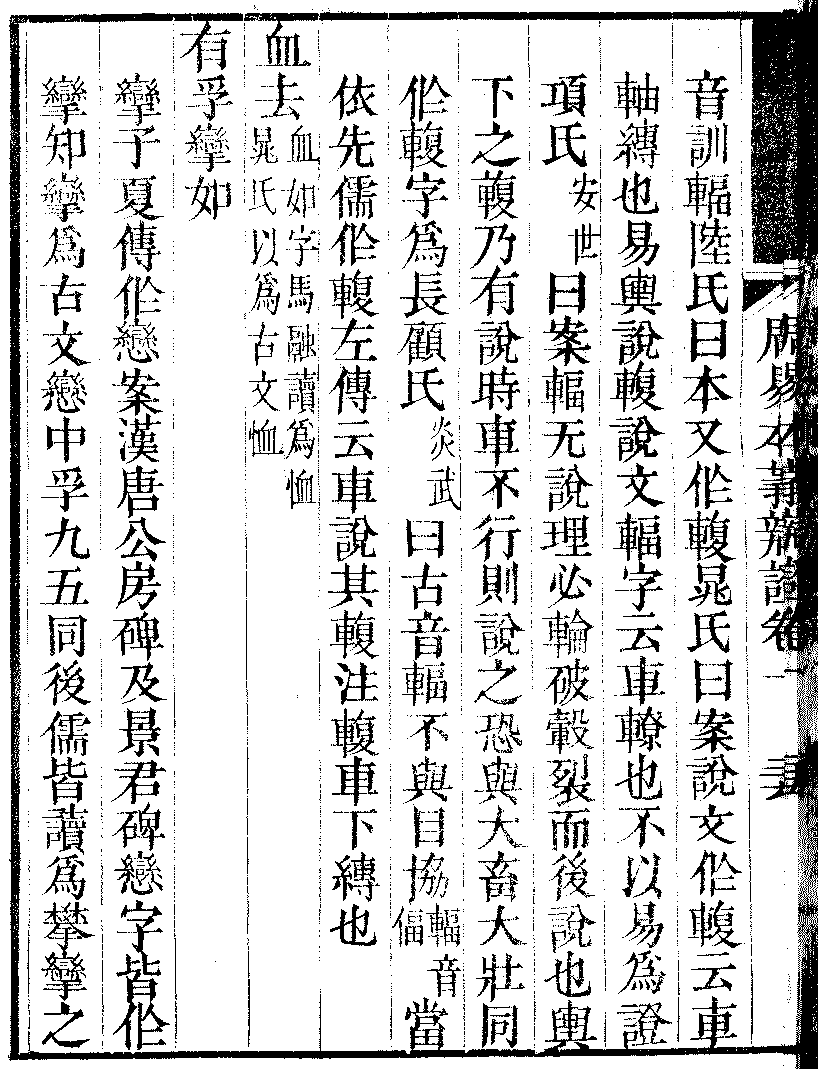 周易本義辨證卷一　五
音訓輻陸氏曰本又作輹晁氏曰案說文作輹云車
軸縛也易輿說輹說文輻字云車轑也不以易爲證
項氏安世曰案輻无說理必輪破轂裂而後說也輿
下之輹乃有說時車不行則說之恐與大畜大壯同
作輹字爲長顧氏炎武曰古音輻不與目協輻音偪當
依先儒作輹左傳云車說其輹注輹車下縛也
血去血如字馬融讀爲恤晁氏以爲古文恤
有孚攣如
攣子夏傳作戀案漢唐公房碑及景君碑戀字皆作
攣知攣爲古文戀中孚九五同後儒皆讀爲攀攣之